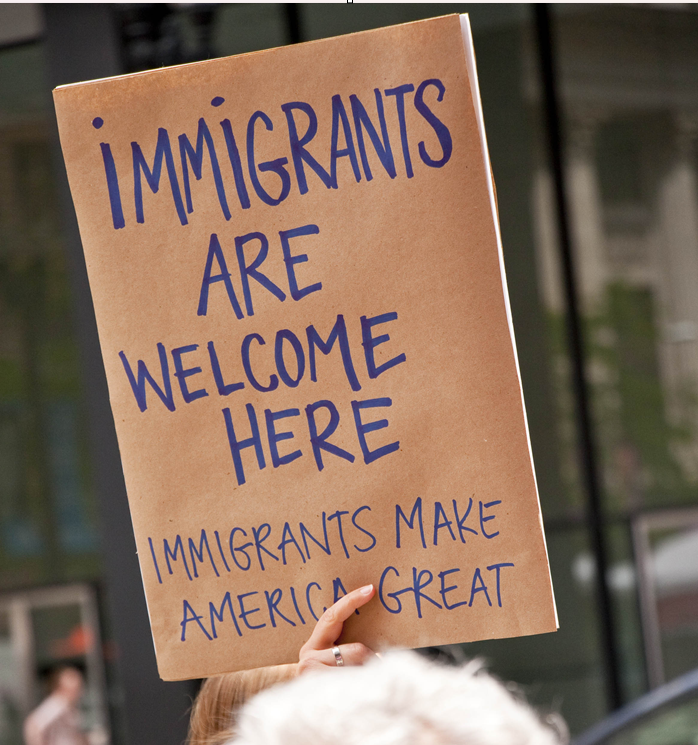 iMMiGRANTS
ARE
WELCOME
HERE
IMMIGRANTS MAKE
AMERICA GREAT